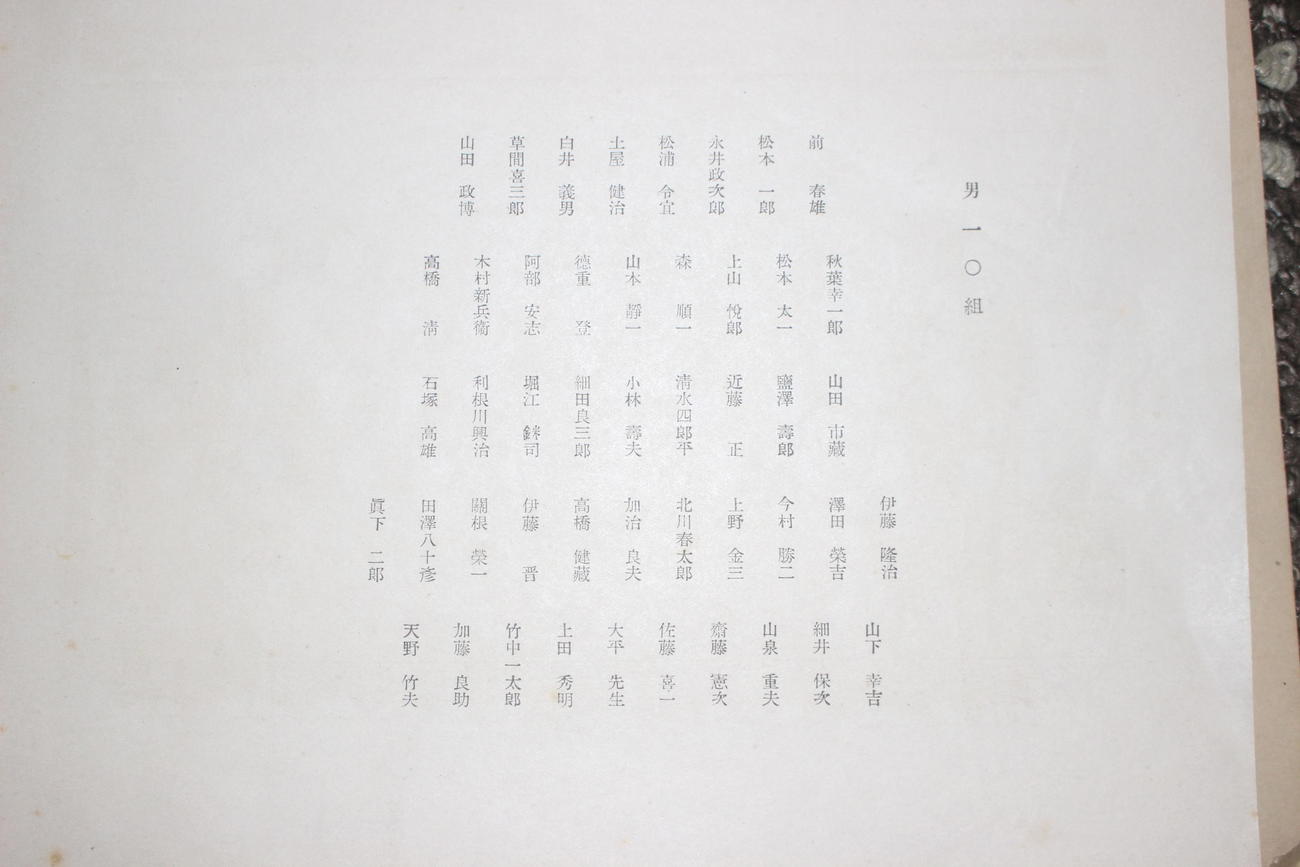 男一〇組
前 春雄
松本 一郎
永井政次郎
松浦 令宜
土屋 健治
白井 義男
草間喜三郎
山田 政博
秋葉幸一郎
松本 太一
上山 悅郎
森 順一
山本 靜一
德重 登
阿部 安志
木村新兵衞
高橋 淸
山田 市藏
鹽澤 壽郎
近藤 正
淸水四郎平
小林 壽夫
細田良三郎
堀江 銤司
利根川興治
石塚 高雄
伊藤 隆治
澤田 榮吉
今村 勝二
上野 金三
北川春太郎
加治 良夫
高橋 健藏
伊藤 晋
關根 榮一
田澤八十彥
眞下 二郎
山下 幸吉
細井 保次
山泉 重夫
齋藤 憲次
佐藤 喜一
大平 先生
上田 秀明
竹中一太郎
加藤 良助
天野 竹夫